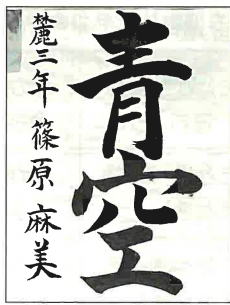 青空
麓三年 篠原 麻美